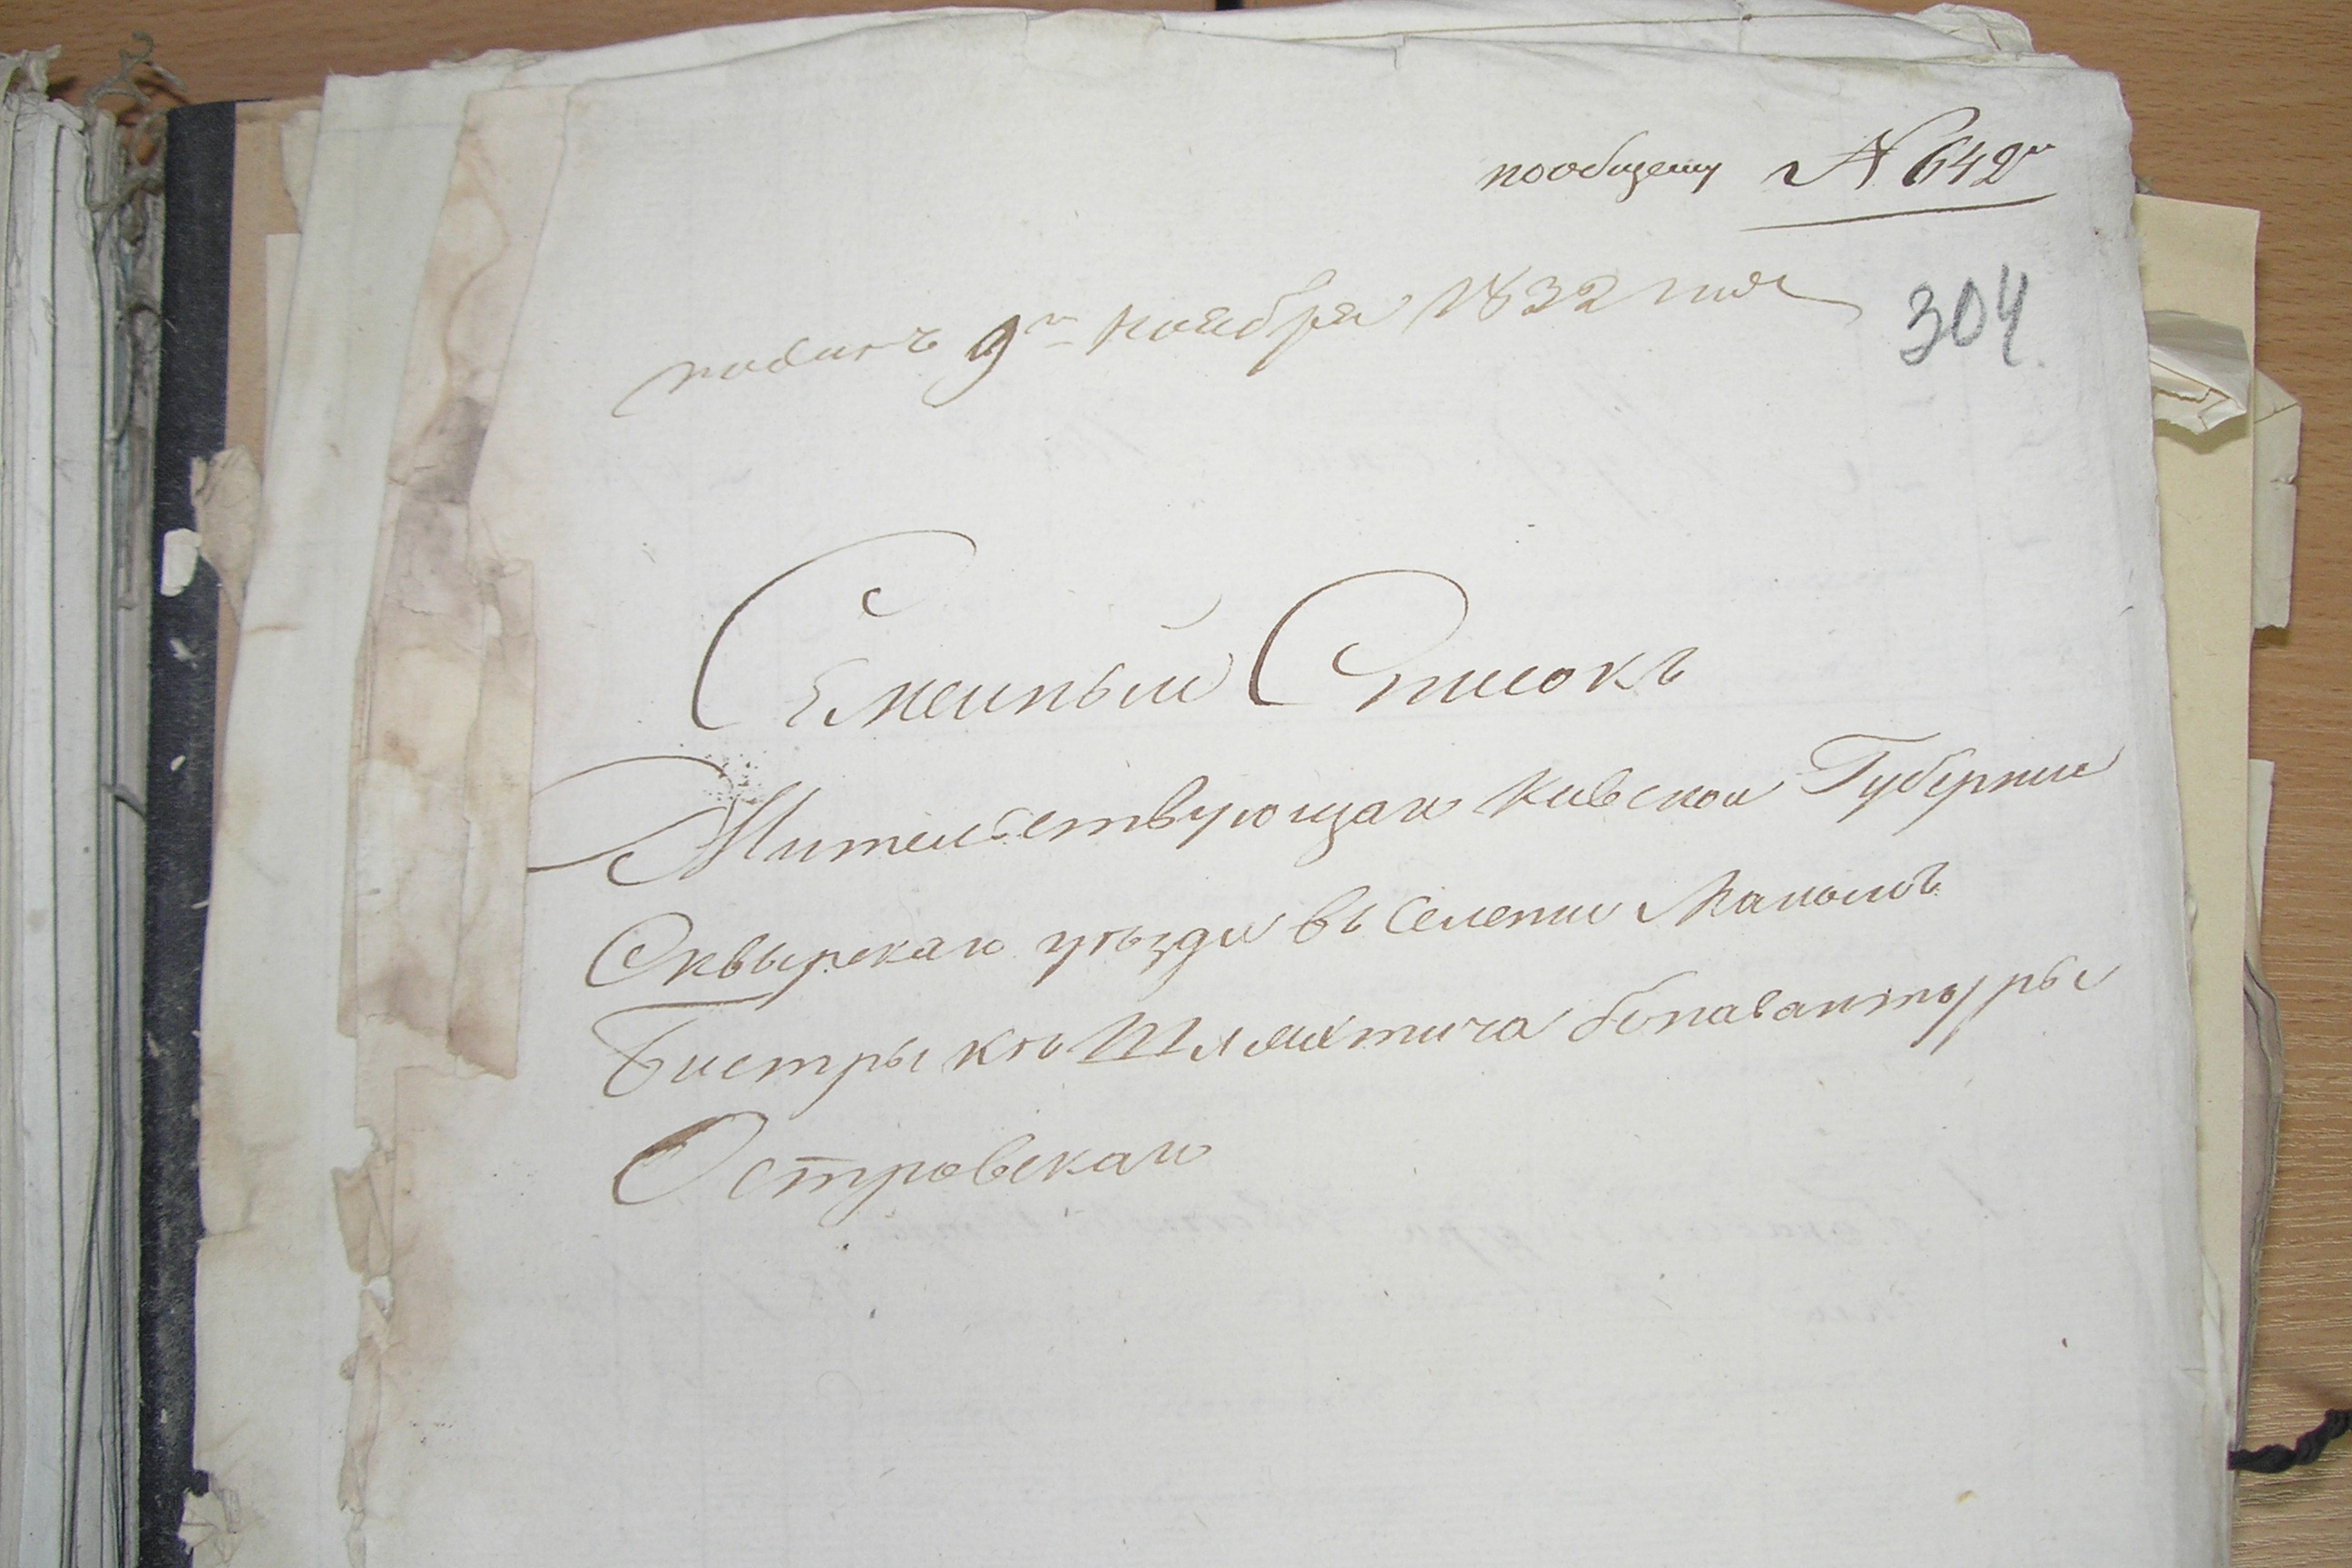 пообщему № 642й
подан 9го ноября 1832 года
304
Семейный Списокъ
Жительствующаго Киевской Губернии
Сквырскаго уъзда въ Селении Малой
Бистрыкъ Шляхтича Бонавантуры
Островскаго